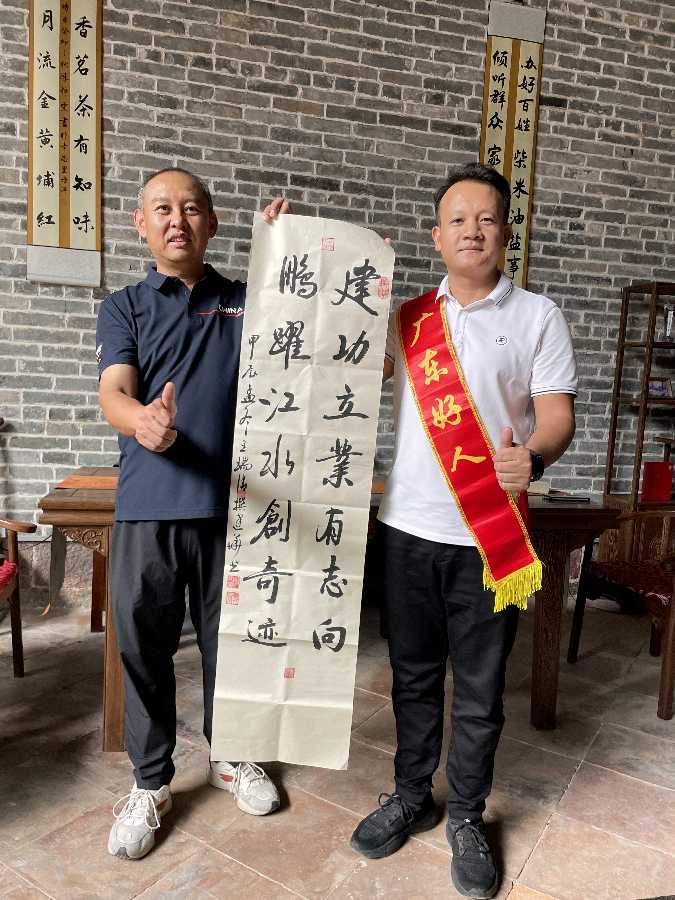 香茗茶有知味
月流金黄埔紅
办好百姓柴米油盐事
倾听群众家
建功立業有志向
鵬躍江水創奇迹
甲辰孟夏王瑞
撰
CHINA
广东好人